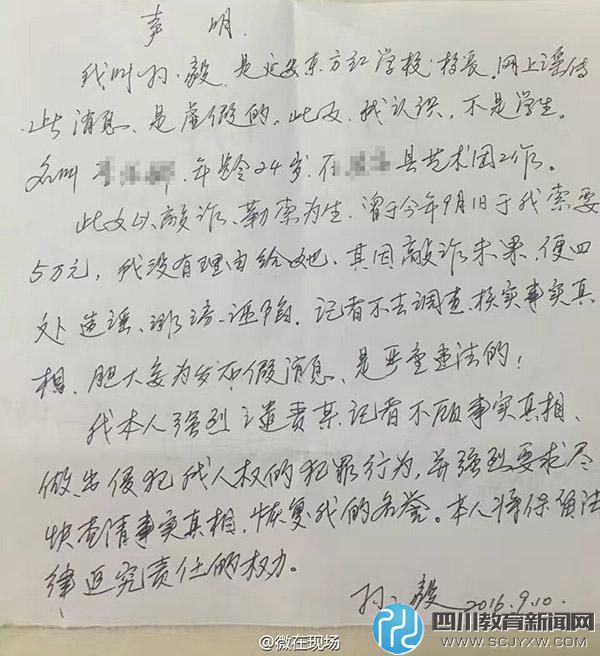 声 明
我叫孙毅,是延安东方红学校校长,网上谣传
此消息,是虚假的。此女,我认识,不是学生。
名叫 年龄24岁,在 县艺术团工作。
此女以敲诈、勒索为生,曾于今年9月1日于我索要
5万元,我没有理由给她,其因敲诈未果,便四
处造谣、诽谤、诬陷。记者不去调查、核实事实真
相,胆大妄为发布假消息,是严重违法的!
我本人强烈谴责某记者不顾事实真相,
做出侵犯我人权的犯罪行为,并强烈要求尽
快查清事实真相,恢复我的名誉。本人将保留法
律追究责任的权力。
孙毅 2016.9.10.
@微在现场
四川教育新闻网
WWW.SCJYXW.COM